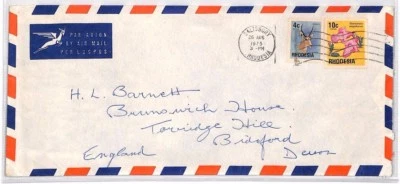 PAR AVION
BY AIR MAIL
PER LUGPOS
SALISBURY
1975
RHODESIA
4c
RHODESIA
10c
RHODESIA
H. L. Barnett
Brunswick House,
Torridge Hill,
Bideford
England Devon